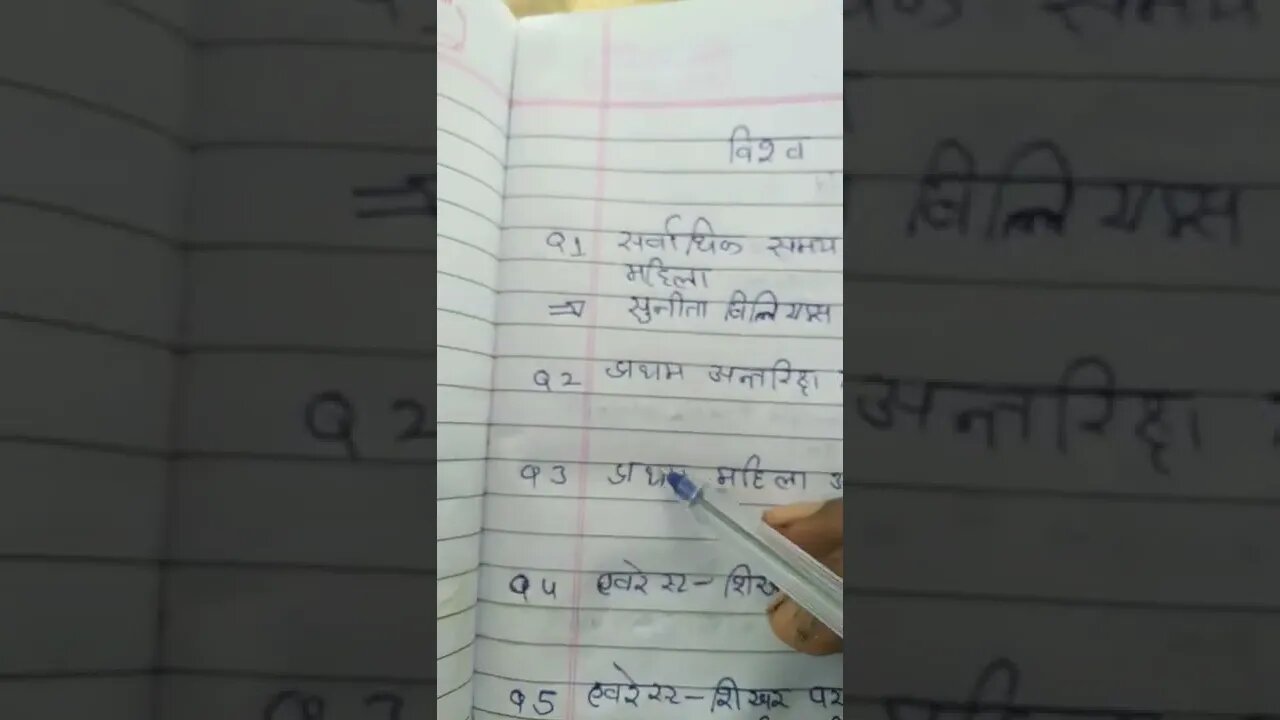 विश्व
Q1 सर्वाधिक समय
महिला
⇒ सुनीता विलियम्स
Q2 प्रथम अन्तरिक्ष
Q3 प्रथम महिला अ
Q4 एवरेस्ट-शिख
Q5 एवरेस्ट-शिखर पर